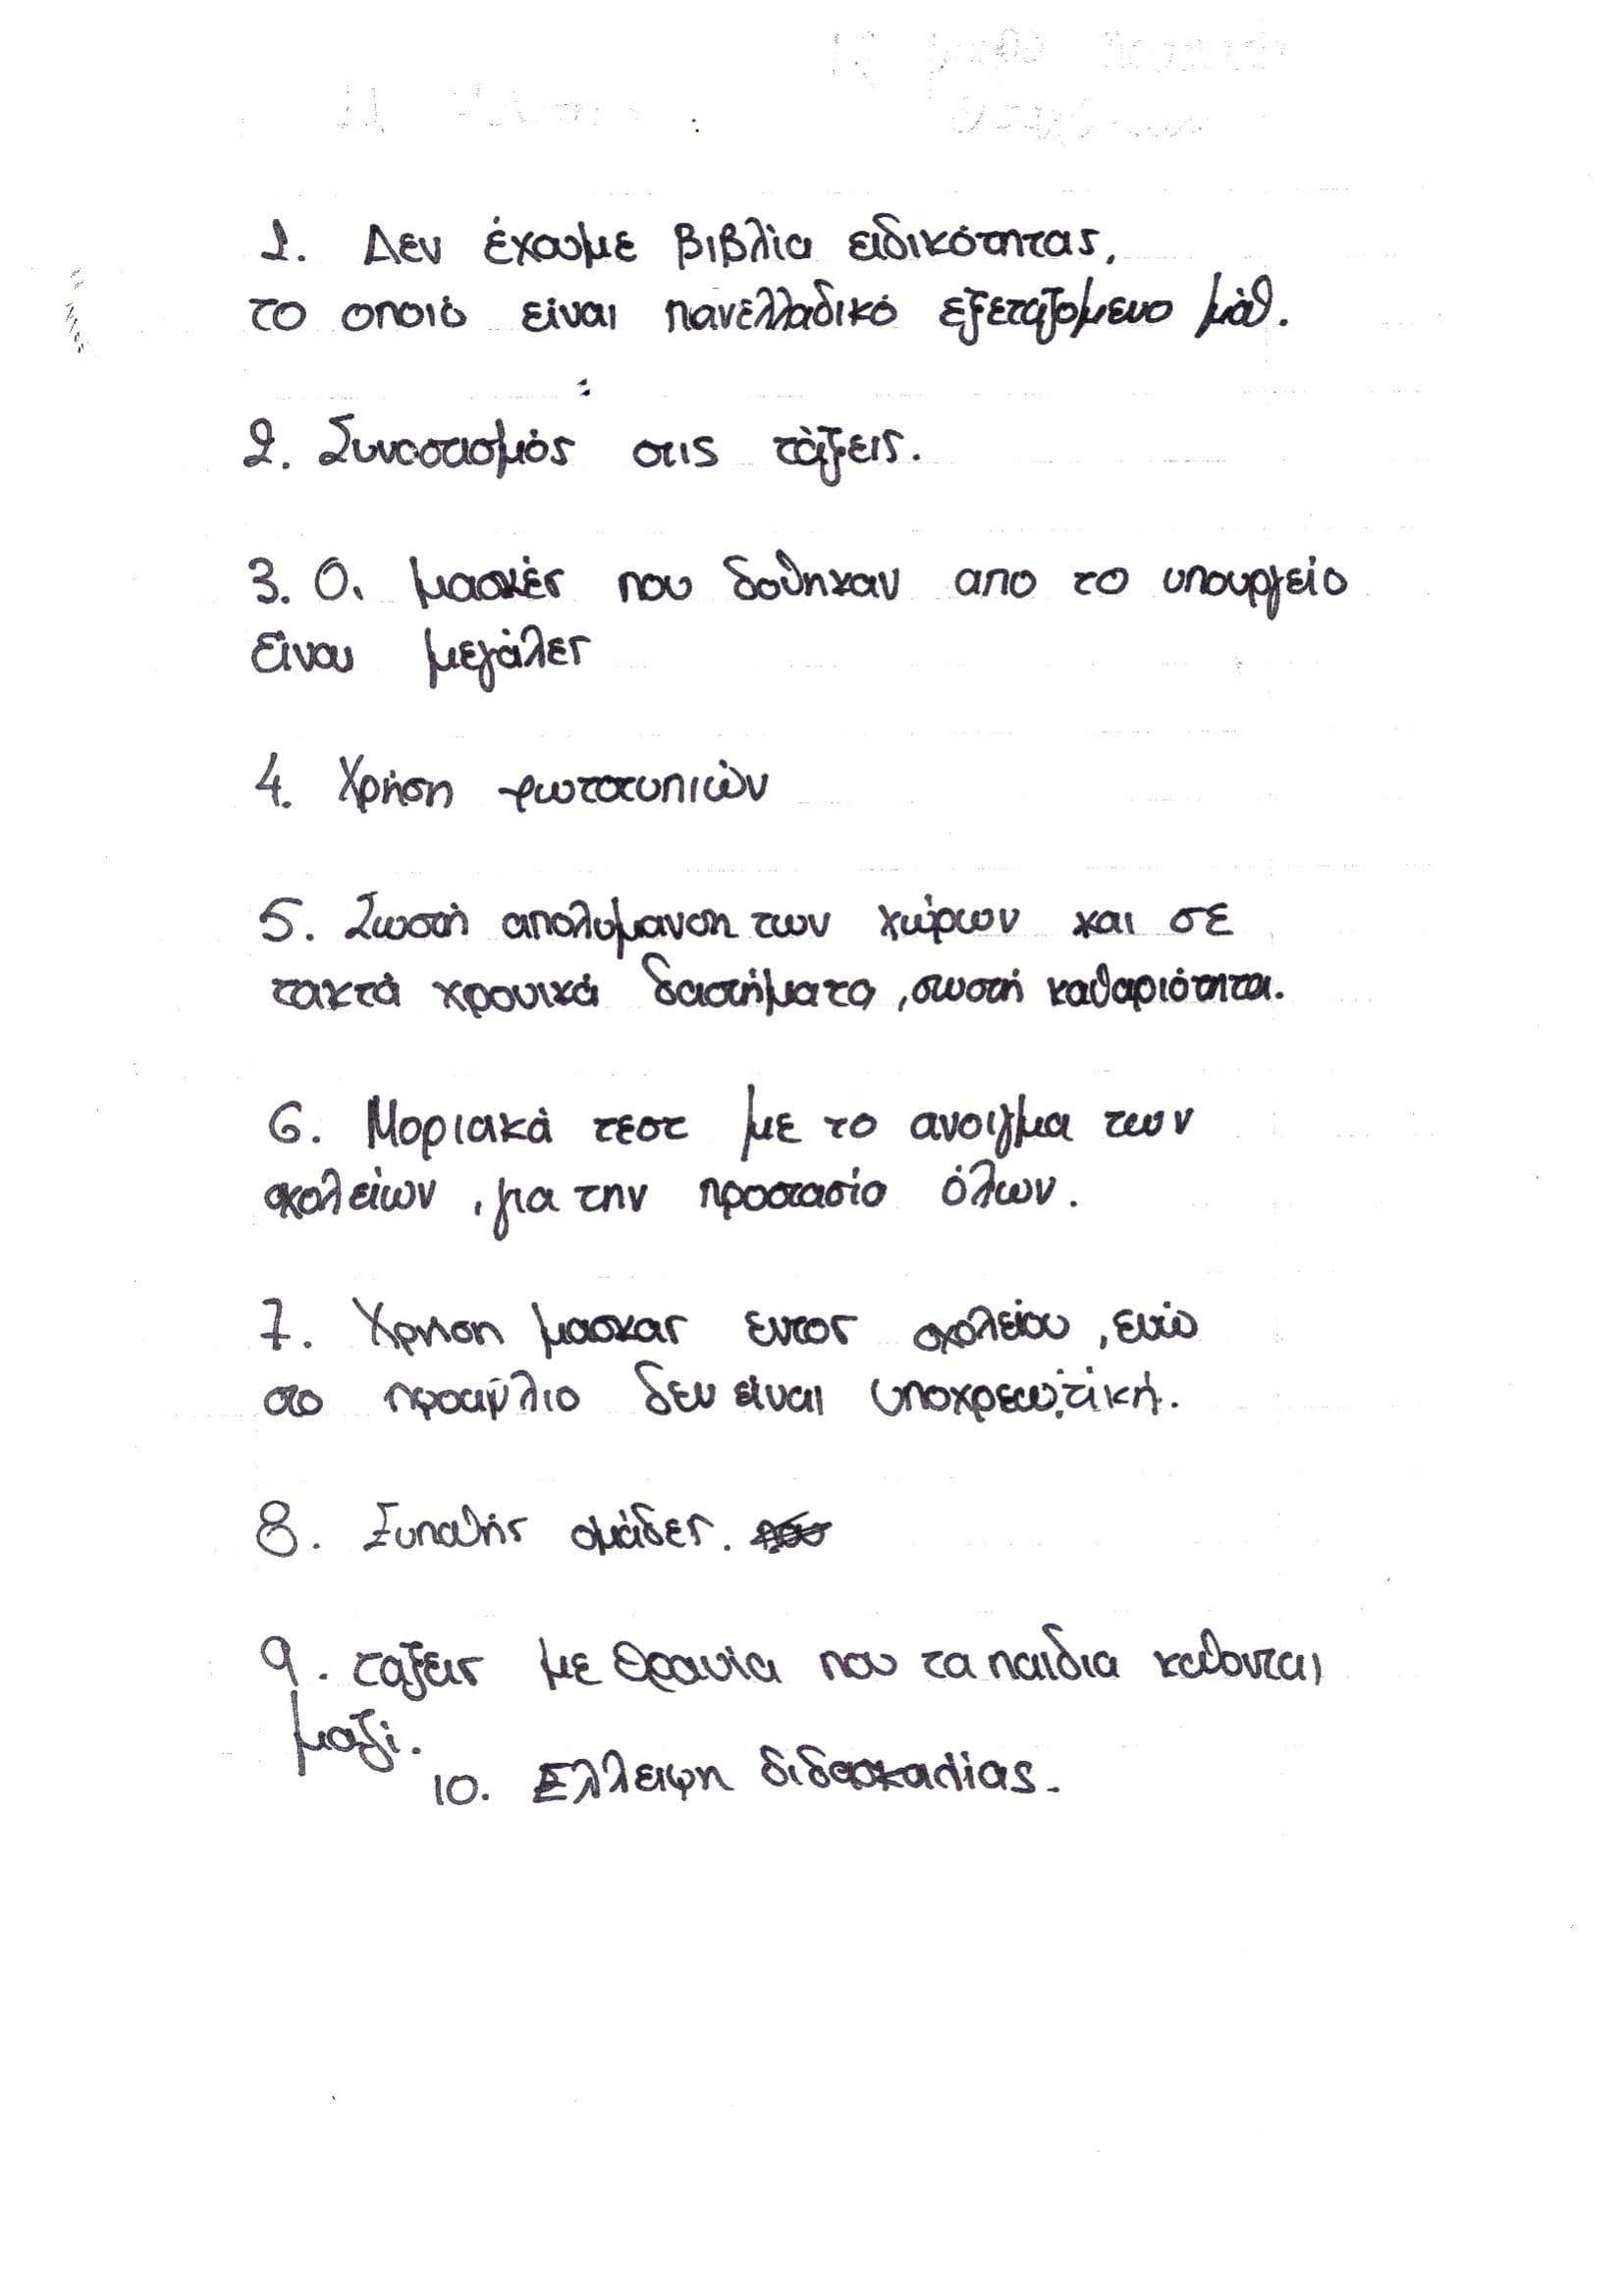 1. Δεν έχουμε βιβλία ειδικότητας,
το οποιό είναι πανελλαδικό εξεταζόμενο μάθ.
2. Συνοστισμός στις τάξεις.
3. Οι μασκές που δοθηκαν απο το υπουργείο
Είναι μεγάλες
4. Χρήση φωτοτυπιών
5. Σωστή απολυμανση των χώρων και σε
τακτά χρονικά διαστήματα, σωστή καθαριότητα.
6. Μοριακά τεστ με το ανοιγμα των
σχολείων, για την προστασία όλων.
7. Χρήση μασκας εντος σχολείου, ενώ
στο προαύλιο δεν είναι υποχρεωτική.
8. Ευπαθής ομάδες.
9. ταξεις με θρανία που τα παιδια καθονται
μαζί.
10. Ελλειψη διδασκαλίας.